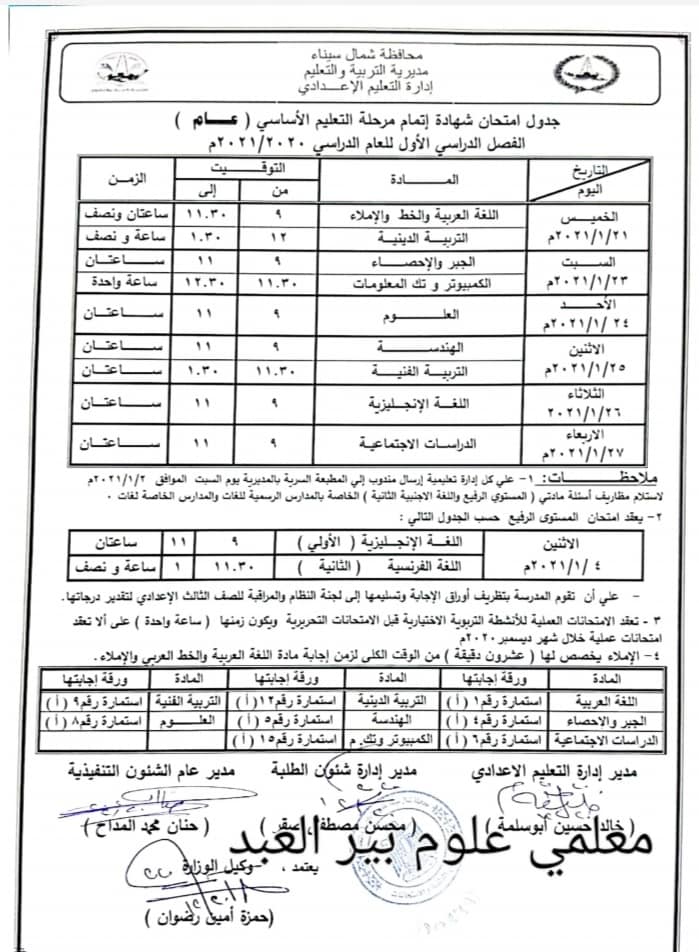 محافظة شمال سيناء
مديرية التربية والتعليم
إدارة التعليم الإعدادي
جدول امتحان شهادة إتمام مرحلة التعليم الأساسي ( عام )
الفصل الدراسي الأول للعام الدراسي ٢٠٢١/٢٠٢٠م
التاريخ اليوم المادة التوقيت الزمن
من إلى
الخميس اللغة العربية والخط والإملاء ٩ ١١.٣٠ ساعتان ونصف
٢٠٢١/١/٢١م التربية الدينية ١٢ ١.٣٠ ساعة و نصف
السبت الجبر والإحصاء ٩ ١١ ساعتان
٢٠٢١/١/٢٣م الكمبيوتر و تك المعلومات ١١.٣٠ ١٢.٣٠ ساعة واحدة
الأحد
٢٠٢١/١/٢٤م العلوم ٩ ١١ ساعتان
الاثنين الهندسة ٩ ١١ ساعتان
٢٠٢١/١/٢٥م التربية الفنية ١١.٣٠ ١.٣٠ ساعتان
الثلاثاء
٢٠٢١/١/٢٦ اللغة الإنجليزية ٩ ١١ ساعتان
الاربعاء
٢٠٢١/١/٢٧م الدراسات الاجتماعية ٩ ١١ ساعتان
ملاحظات: ١- علي كل إدارة تعليمية إرسال مندوب إلي المطبعة السرية بالمديرية يوم السبت الموافق ٢٠٢١/١/٢م
لاستلام مظاريف أسئلة مادتي ( المستوي الرفيع واللغة الاجنبية الثانية ) الخاصة بالمدارس الرسمية للغات والمدارس الخاصة لغات .
٢- يعقد امتحان المستوى الرفيع حسب الجدول التالي :
الاثنين اللغة الإنجليزية ( الأولي ) ٩ ١١ ساعتان
٢٠٢١/١/٤م اللغة الفرنسية ( الثانية ) ١١.٣٠ ١ ساعة و نصف
- علي أن تقوم المدرسة بتظريف أوراق الإجابة وتسليمها إلى لجنة النظام والمراقبة للصف الثالث الإعدادي لتقدير درجاتها.
٣ - تعقد الامتحانات العملية للأنشطة التربوية الاختيارية قبل الامتحانات التحريرية ويكون زمنها ( ساعة واحدة ) على ألا تعقد
امتحانات عملية خلال شهر ديسمبر ٢٠٢٠م
٤- الإملاء يخصص لها ( عشرون دقيقة ) من الوقت الكلى لزمن إجابة مادة اللغة العربية والخط العربي والإملاء.
المادة ورقة إجابتها المادة ورقة إجابتها المادة ورقة إجابتها
اللغة العربية استمارة رقم١ ( أ ) التربية الدينية استمارة رقم١٢ ( أ ) التربية الفنية استمارة رقم٩ ( أ )
الجبر والاحصاء استمارة رقم٤ ( أ ) الهندسة استمارة رقم٥ ( أ ) العلوم استمارة رقم٨ ( أ )
الدراسات الاجتماعية استمارة رقم٦ ( أ ) الكمبيوتر وتك. م استمارة رقم١٥ ( أ )
مدير إدارة التعليم الاعدادي مدير إدارة شئون الطلبة مدير عام الشئون التنفيذية
( خالد حسين أبوسلمة ) ( محسن مصطفى صقر ) ( حنان محمد المداح )
معلمي علوم بير العبد
يعتمد ، وكيل الوزارة
(حمزة أمين رضوان )